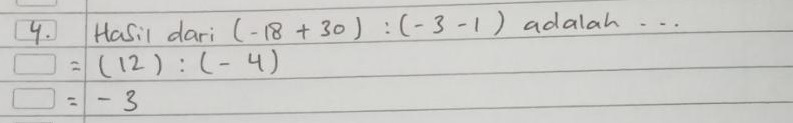 4. Hasil dari (-18 + 30) : (-3 -1) adalah ...
= (12) : (-4)
= -3